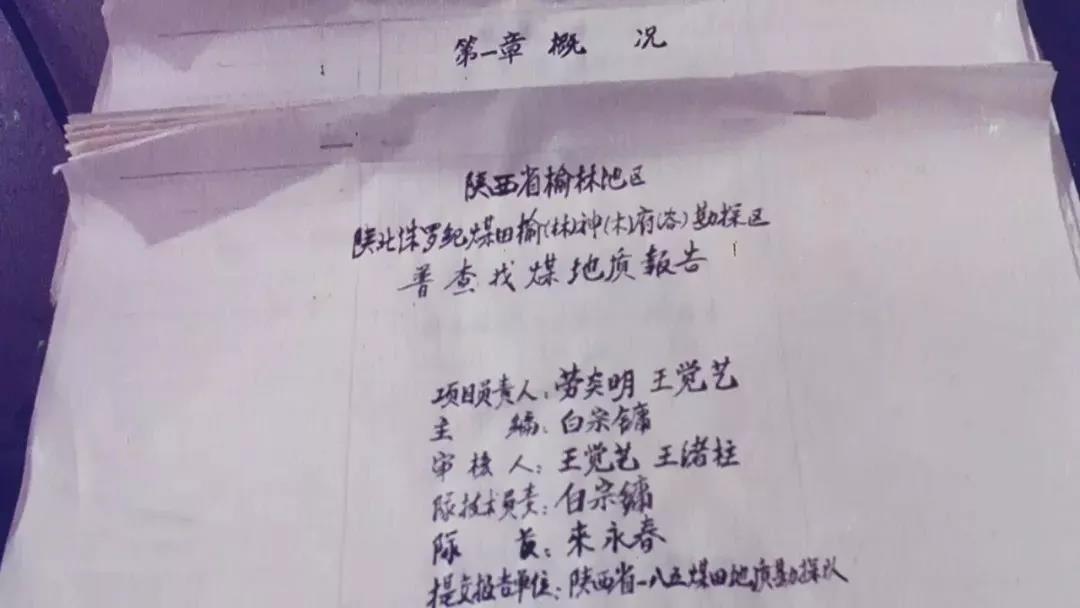 第一章 概 况
陕西省榆林地区
陕北侏罗纪煤田榆(林)神(木)府(谷)勘探区
普查找煤地质報告
项目负责人:劳奕明 王觉艺
主 编:白宗镛
审核人:王觉艺 王绪柱
队技术负责:白宗镛
队 长:来永春
提交报告单位:陕西省一八五煤田地质勘探队